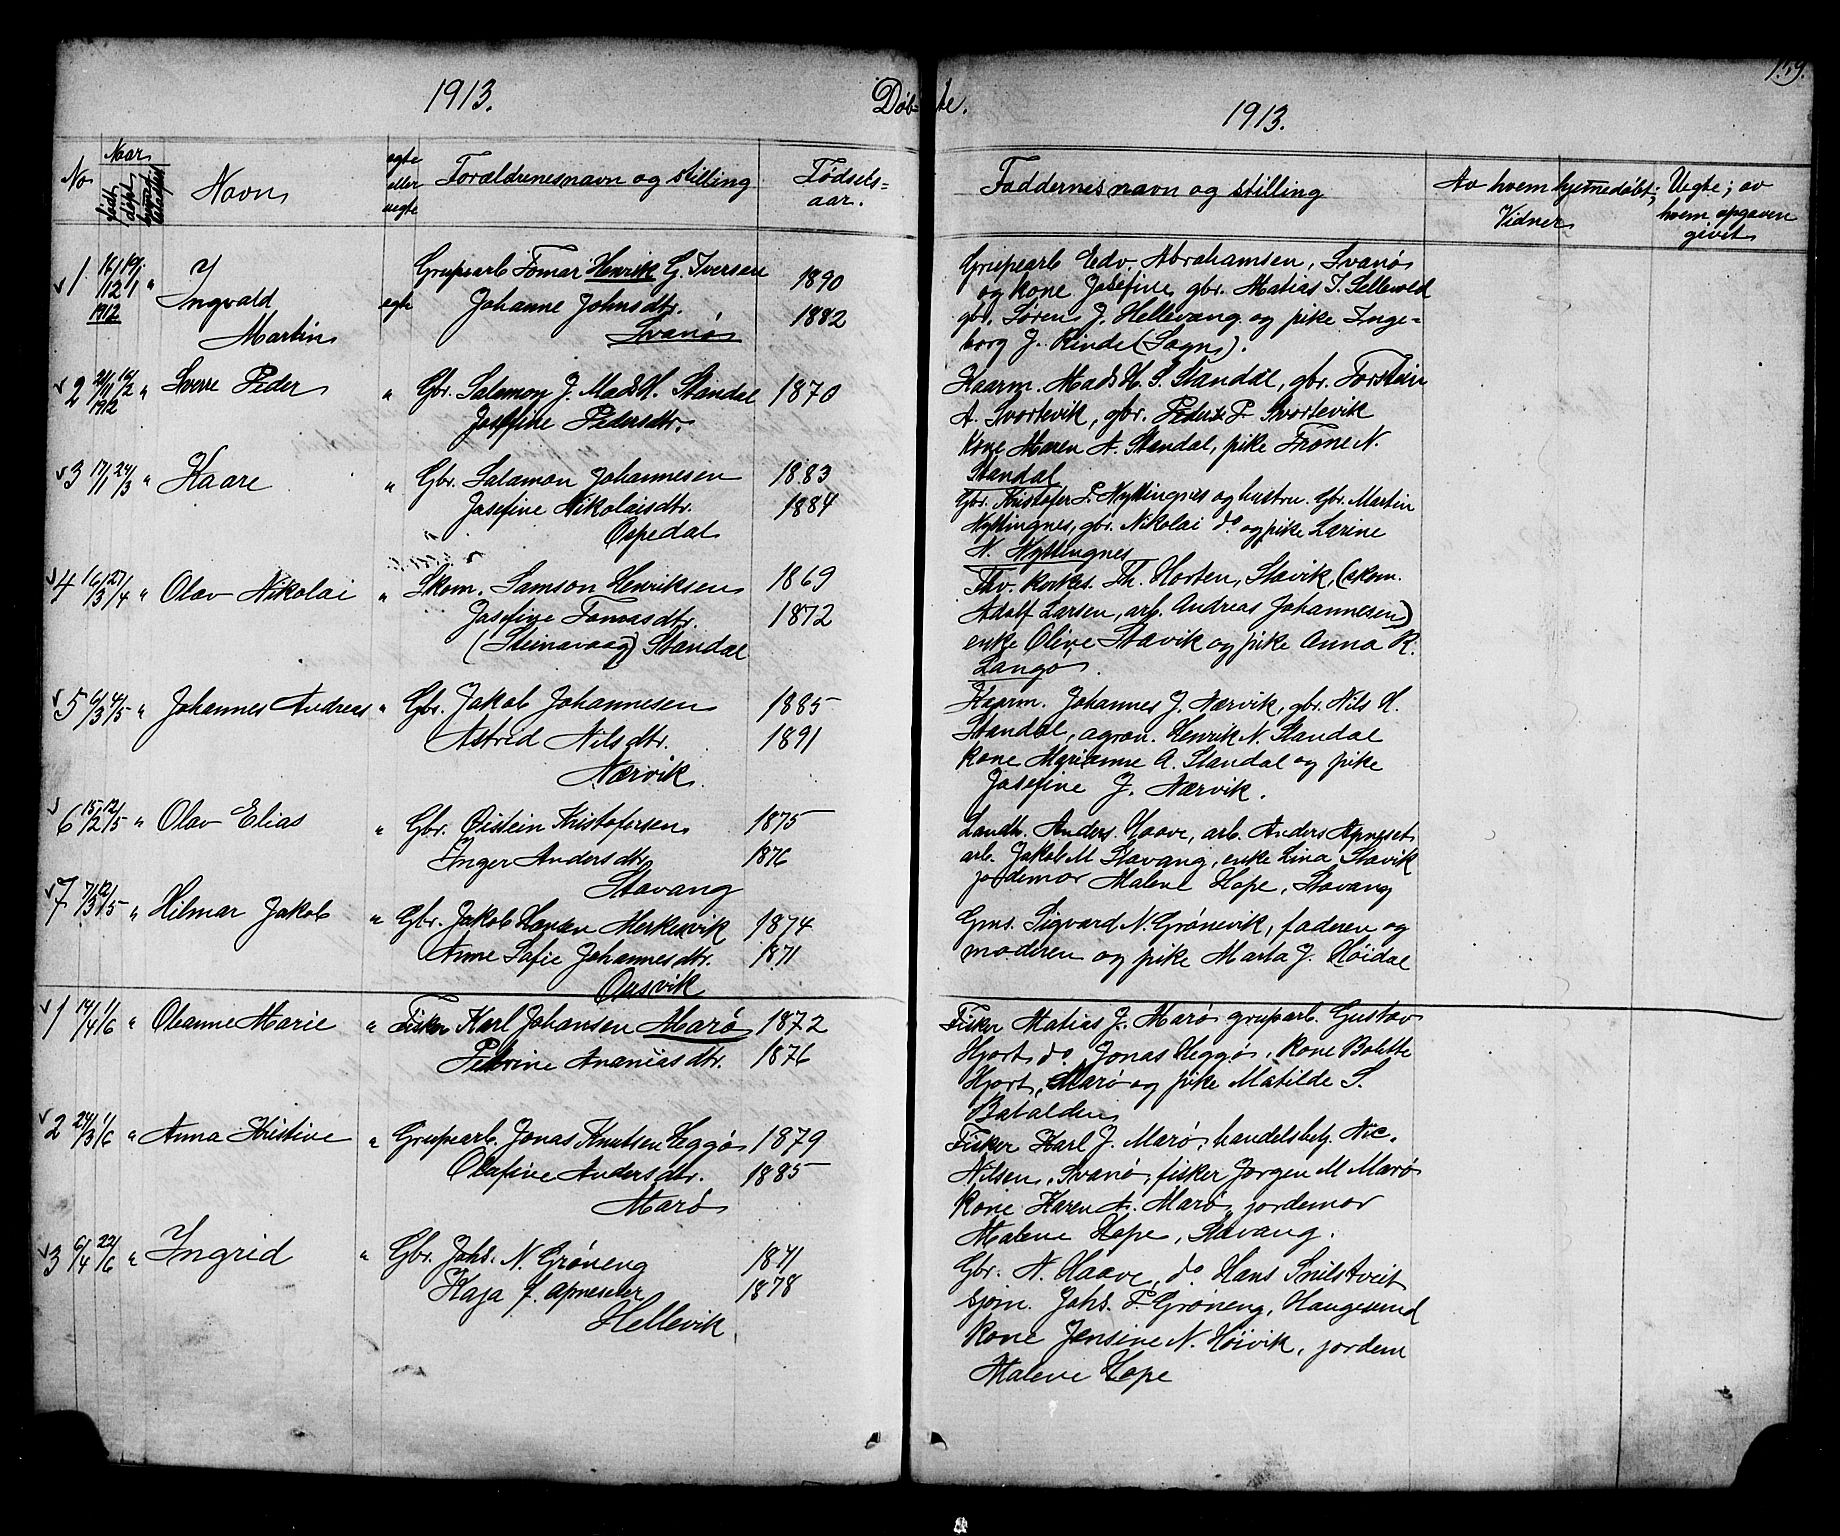 159.
1913.
Døb-te.
1913.
No
Naar
født
døbt
egte
eller
uegte
Navn
Forældrenes navn og stilling
Fødsels=
aar.
Faddernes navn og stilling
Av hvem hjemmedøbt;
Vidner
Uegte; av
hvem opgaven
givet
1. 16/12 1912 19/1 "
Ingvald
Martin
egte
Grupearb Tomar Henrik G. Iversen 1890
Johanne Johnsdtr. 1882
Svanø
Grupearb Edv. Abrahamsen, Svanø
og kone Josefine, gbr. Matias J. Sellevold
gbr. Søren J. Hellevang og pike Inge=
borg J. Rinde (Sogn).
2 21/11 1912 16/2 " Sverre Peder " Gbr. Salamon J. Mads H. Standal 1870
Josefine Pedersdtr.
Kaarm. Mads H. S. Standal, gbr. Torstein
A. Svortevik, gbr. Peder P. Svortevik
kone Maren A. Standal, pike Trone N.
Standal
3 17/1 24/3 " Kaare " Gbr. Salamon Johannesen 1883
Josefine Nikolaisdtr. 1884
Ospedal
Gbr. Kristofer P. Nyttingnes og hustru. Gbr. Martin
Nyttingnes, gbr. Nikolai do og pike Larine
N. Nyttingnes
4 16/3 27/4 " Olav Nikolai " Skom. Samson Henriksen 1869
Josefine Tomasdtr. 1872
(Steinavaag) Standal
Fhv. kirkes. Th. Horten, Stavik (skom.
Adolf Larsen, arb. Andreas Johannesen)
enke Olive Stavik og pike Anna R.
Langø
5 6/3 4/5 " Johannes Andreas " Gbr. Jakob Johannesen 1885
Astrid Nilsdtr. 1891
Nærvik
Kaarm. Johannes J. Nærvik, gbr. Nils H.
Standal, agron. Henrik N. Standal
kone Marianne A. Standal og pike
Josefine J. Nærvik.
6 15/2 12/5 " Olav Elias " Gbr. Øistein Kristofersen 1875
Inger Andersdtr. 1876
Stavang
Landh. Anders Haave, arb. Anders Apneset
arb. Jakob M Stavang, enke Lina Stavik
jordemor Malene Hope, Stavang
7 7/3 12/5 " Hilmar Jakob " Gbr. Jakob Hansen Merkesvik 1874
Anne Sofie Johannesdtr. 1871
Ousvik
Gms. Sigvard N. Grønevik, faderen og
moderen og pike Marta J. Høidal
1 14/4 1/6 " Oleanne Marie " Fisker Karl Johansen Marø 1872
Petrine Ananiasdtr. 1876
Fisker Matias J. Marø gruparb. Gustav
Hjort do Jonas Heggø, kone Bolette
Hjort, Marø og pike Matilde S.
Batalden
2 24/3 1/6 " Anna Kristine " Grupearb. Jonas Knutsen Heggø 1879
Olafine Andersdtr. 1885
Marø
Fisker Karl J. Marø, handelsbetj. Nic.
Nilsen, Svanø, fisker Jørgen M Marø
kone Karen A. Marø, jordemor
Malene Hope, Stavang.
3 6/4 22/6 " Ingrid " Gbr. Johs. N. Grøneng 1871
Kaja J. Apneseter 1878
Hellevik
Gbr. N. Haave, do Hans Snilstveit
sjøm. Johs. P. Grøneng, Haugesund
kone Jensine N. Høivik, jordem
Malene Hope